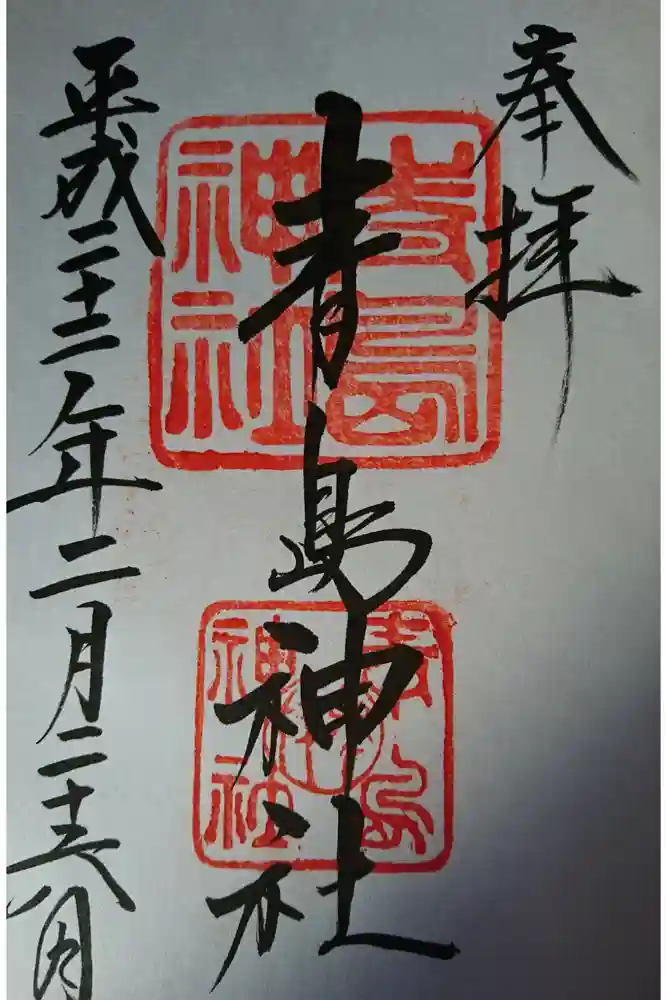 奉拝
青島神社
青島
神社
青島
神社
平成二十二年二月二十六日